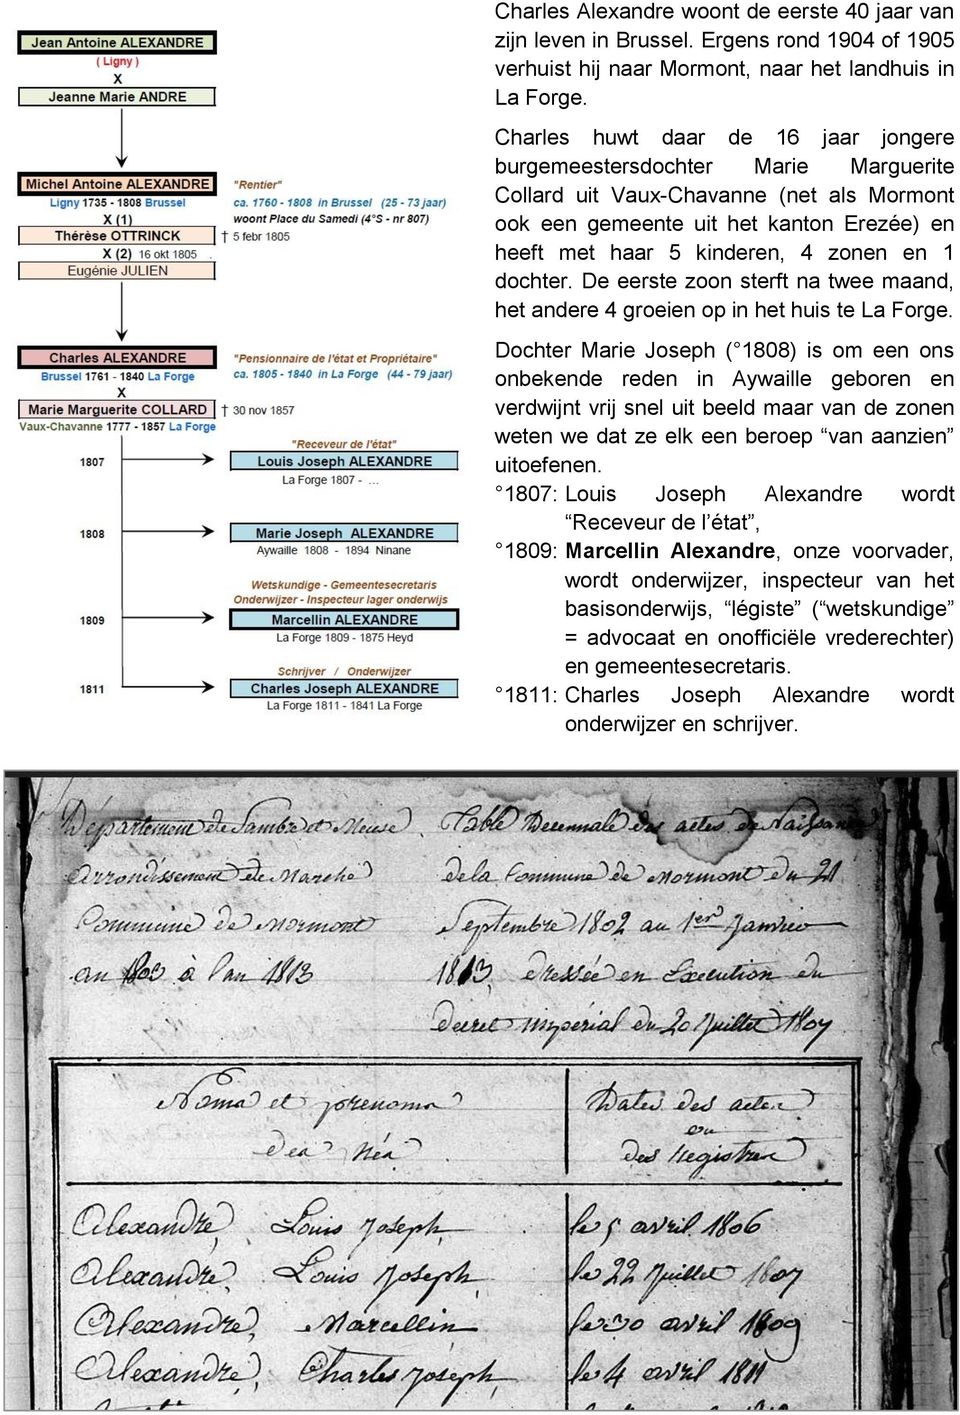 Jean Antoine ALEXANDRE
( Ligny )
X
Jeanne Marie ANDRE
Michel Antoine ALEXANDRE
Ligny 1735 - 1808 Brussel
X (1)
Thérèse OTTRINCK
X (2) 16 okt 1805 .
Eugénie JULIEN
"Rentier"
ca. 1760 - 1808 in Brussel (25 - 73 jaar)
woont Place du Samedi (4°S - nr 807)
† 5 febr 1805
Charles ALEXANDRE
Brussel 1761 - 1840 La Forge
X
Marie Marguerite COLLARD
Vaux-Chavanne 1777 - 1857 La Forge
"Pensionnaire de l'état et Propriétaire"
ca. 1805 - 1840 in La Forge (44 - 79 jaar)
† 30 nov 1857
"Receveur de l'état"
1807
Louis Joseph ALEXANDRE
La Forge 1807 - ...
1808
Marie Joseph ALEXANDRE
Aywaille 1808 - 1894 Ninane
Wetskundige - Gemeentesecretaris
Onderwijzer - Inspecteur lager onderwijs
1809
Marcellin ALEXANDRE
La Forge 1809 - 1875 Heyd
Schrijver / Onderwijzer
1811
Charles Joseph ALEXANDRE
La Forge 1811 - 1841 La Forge
Charles Alexandre woont de eerste 40 jaar van
zijn leven in Brussel. Ergens rond 1904 of 1905
verhuist hij naar Mormont, naar het landhuis in
La Forge.
Charles huwt daar de 16 jaar jongere
burgemeestersdochter Marie Marguerite
Collard uit Vaux-Chavanne (net als Mormont
ook een gemeente uit het kanton Erezée) en
heeft met haar 5 kinderen, 4 zonen en 1
dochter. De eerste zoon sterft na twee maand,
het andere 4 groeien op in het huis te La Forge.
Dochter Marie Joseph (°1808) is om een ons
onbekende reden in Aywaille geboren en
verdwijnt vrij snel uit beeld maar van de zonen
weten we dat ze elk een beroep “van aanzien”
uitoefenen.
°1807: Louis Joseph Alexandre wordt
“Receveur de l’état”,
°1809: Marcellin Alexandre, onze voorvader,
wordt onderwijzer, inspecteur van het
basisonderwijs, “légiste” (“wetskundige”
= advocaat en onofficiële vrederechter)
en gemeentesecretaris.
°1811: Charles Joseph Alexandre wordt
onderwijzer en schrijver.
Département de Sambre et Meuse.
Arrondissement de Marche
Commune de Mormont
an 1803 à l'an 1813
Table Decennale des actes de Naissance
de la Commune de Mormont du 21
Septembre 1802 au 1er Janvier
1813, dressée en Execution du
decret impérial du 20 Juillet 1807
Noms et prenoms
des Nés
Dates des actes
ou
des Registres
Alexandre, Louis Joseph, le 5 avril 1806
Alexandre, Louis Joseph, le 22 Juillet 1807
Alexandre, Marcellin le 30 avril 1809
Alexandre, Charles Joseph, le 4 avril 1811